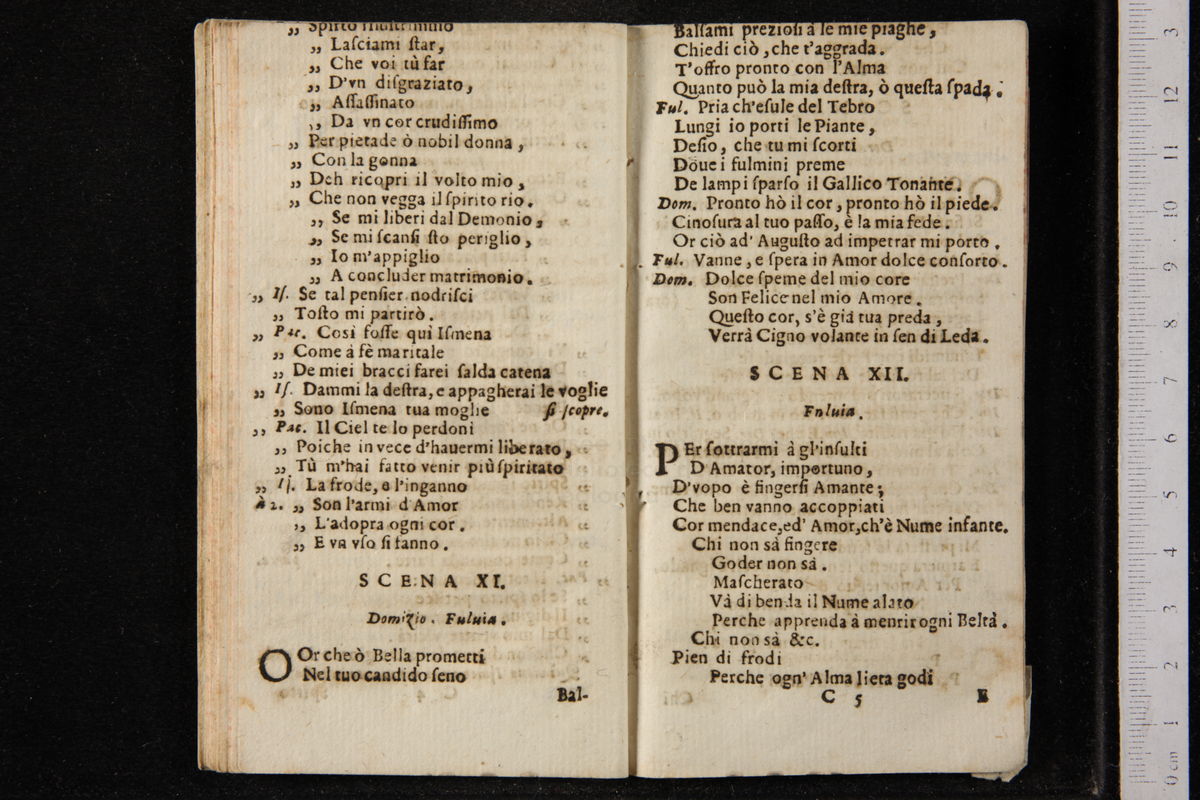 „ Spirto
„ Laſciami ſtar,
„ Che voi tù far
„ D'vn diſgraziato,
„ Aſſaſſinato
„ Da vn cor crudiſſimo
„ Per pietade ò nobil donna,
„ Con la gonna
„ Deh ricopri il volto mio,
„ Che non vegga il ſpirito rio.
„ Se mi liberi dal Demonio,
„ Se mi ſcanſi ſto periglio,
„ Io m'appiglio
„ A concluder matrimonio.
„ Iſ. Se tal penſier nodriſci
„ Toſto mi partirò.
„ Pac. Così foſſe quì Iſmena
„ Come à fè maritale
„ De miei bracci farei ſalda catena
„ Iſ. Dammi la deſtra, e appagherai le voglie
„ Sono Iſmena tua moglie ſi ſcopre.
„ Pac. Il Ciel te lo perdoni
„ Poiche in vece d'hauermi liberato,
„ Tù m'hai fatto venir più ſpiritato
„ Iſ. La frode, e l'inganno
À 2. „ Son l'armi d'Amor
„ L'adopra ogni cor.
„ E vn vſo ſi fanno.
SCENA XI.
Domizio. Fuluia.
OOr che ò Bella prometti
Nel tuo candido ſeno
Bal-
Balſami prezioſi à le mie piaghe,
Chiedi ciò, che t'aggrada.
T'offro pronto con l'Alma
Quanto può la mia deſtra, ò queſta ſpada.
Ful. Pria ch'eſule del Tebro
Lungi io porti le Piante,
Deſio, che tu mi ſcorti
Doue i fulmini preme
De lampi ſparſo il Gallico Tonante.
Dom. Pronto hò il cor, pronto hò il piede.
Cinoſura al tuo paſſo, è la mia fede.
Or ciò ad' Auguſto ad impetrar mi porto.
Ful. Vanne, e ſpera in Amor dolce conforto.
Dom. Dolce ſpeme del mio core
Son Felice nel mio Amore.
Queſto cor, s'è già tua preda,
Verrà Cigno volante in ſen di Leda.
SCENA XII.
Fnluia.
PEr ſottrarmi à gl'inſulti
D Amator, importuno,
D'vopo è fingerſi Amante;
Che ben vanno accoppiati
Cor mendace, ed' Amor, ch'è Nume infante.
Chi non sà fingere
Goder non sà.
Maſcherato
Và di benda il Nume alato
Perche apprenda à mentrir ogni Beltà.
Chi non sà &c.
Pien di frodi
Perche ogn' Alma lieta godi
C 5
E